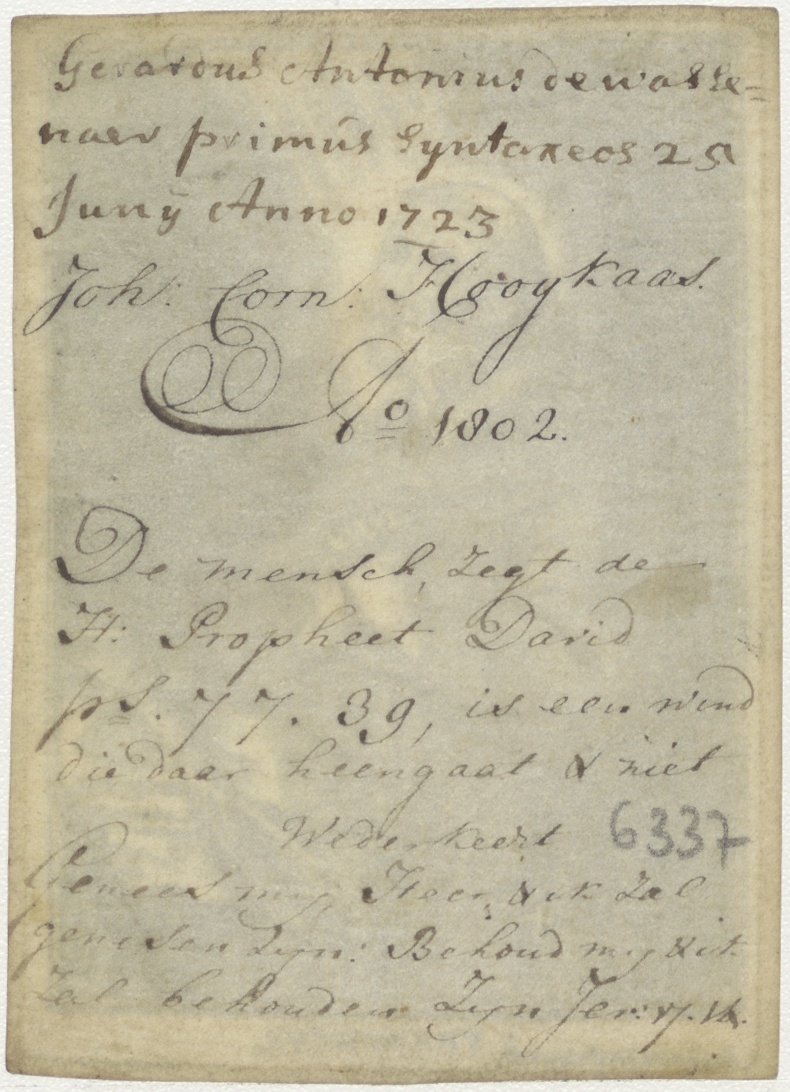 Gerardus Antonius de wasse=
naer primus Syntaxeos 25
Junÿ Anno 1723
Joh: Corn: Hooykaas.
Ao 1802.
De mensch, zegt de
H: Propheet David
ps. 77. 39, is een wind
die daar heengaat & niet
Wederkeert
6337
Genees my Heer, & ik zal
genesen zyn: Behoud my & ik
Zal behouden Zyn Jer: 17. 14.